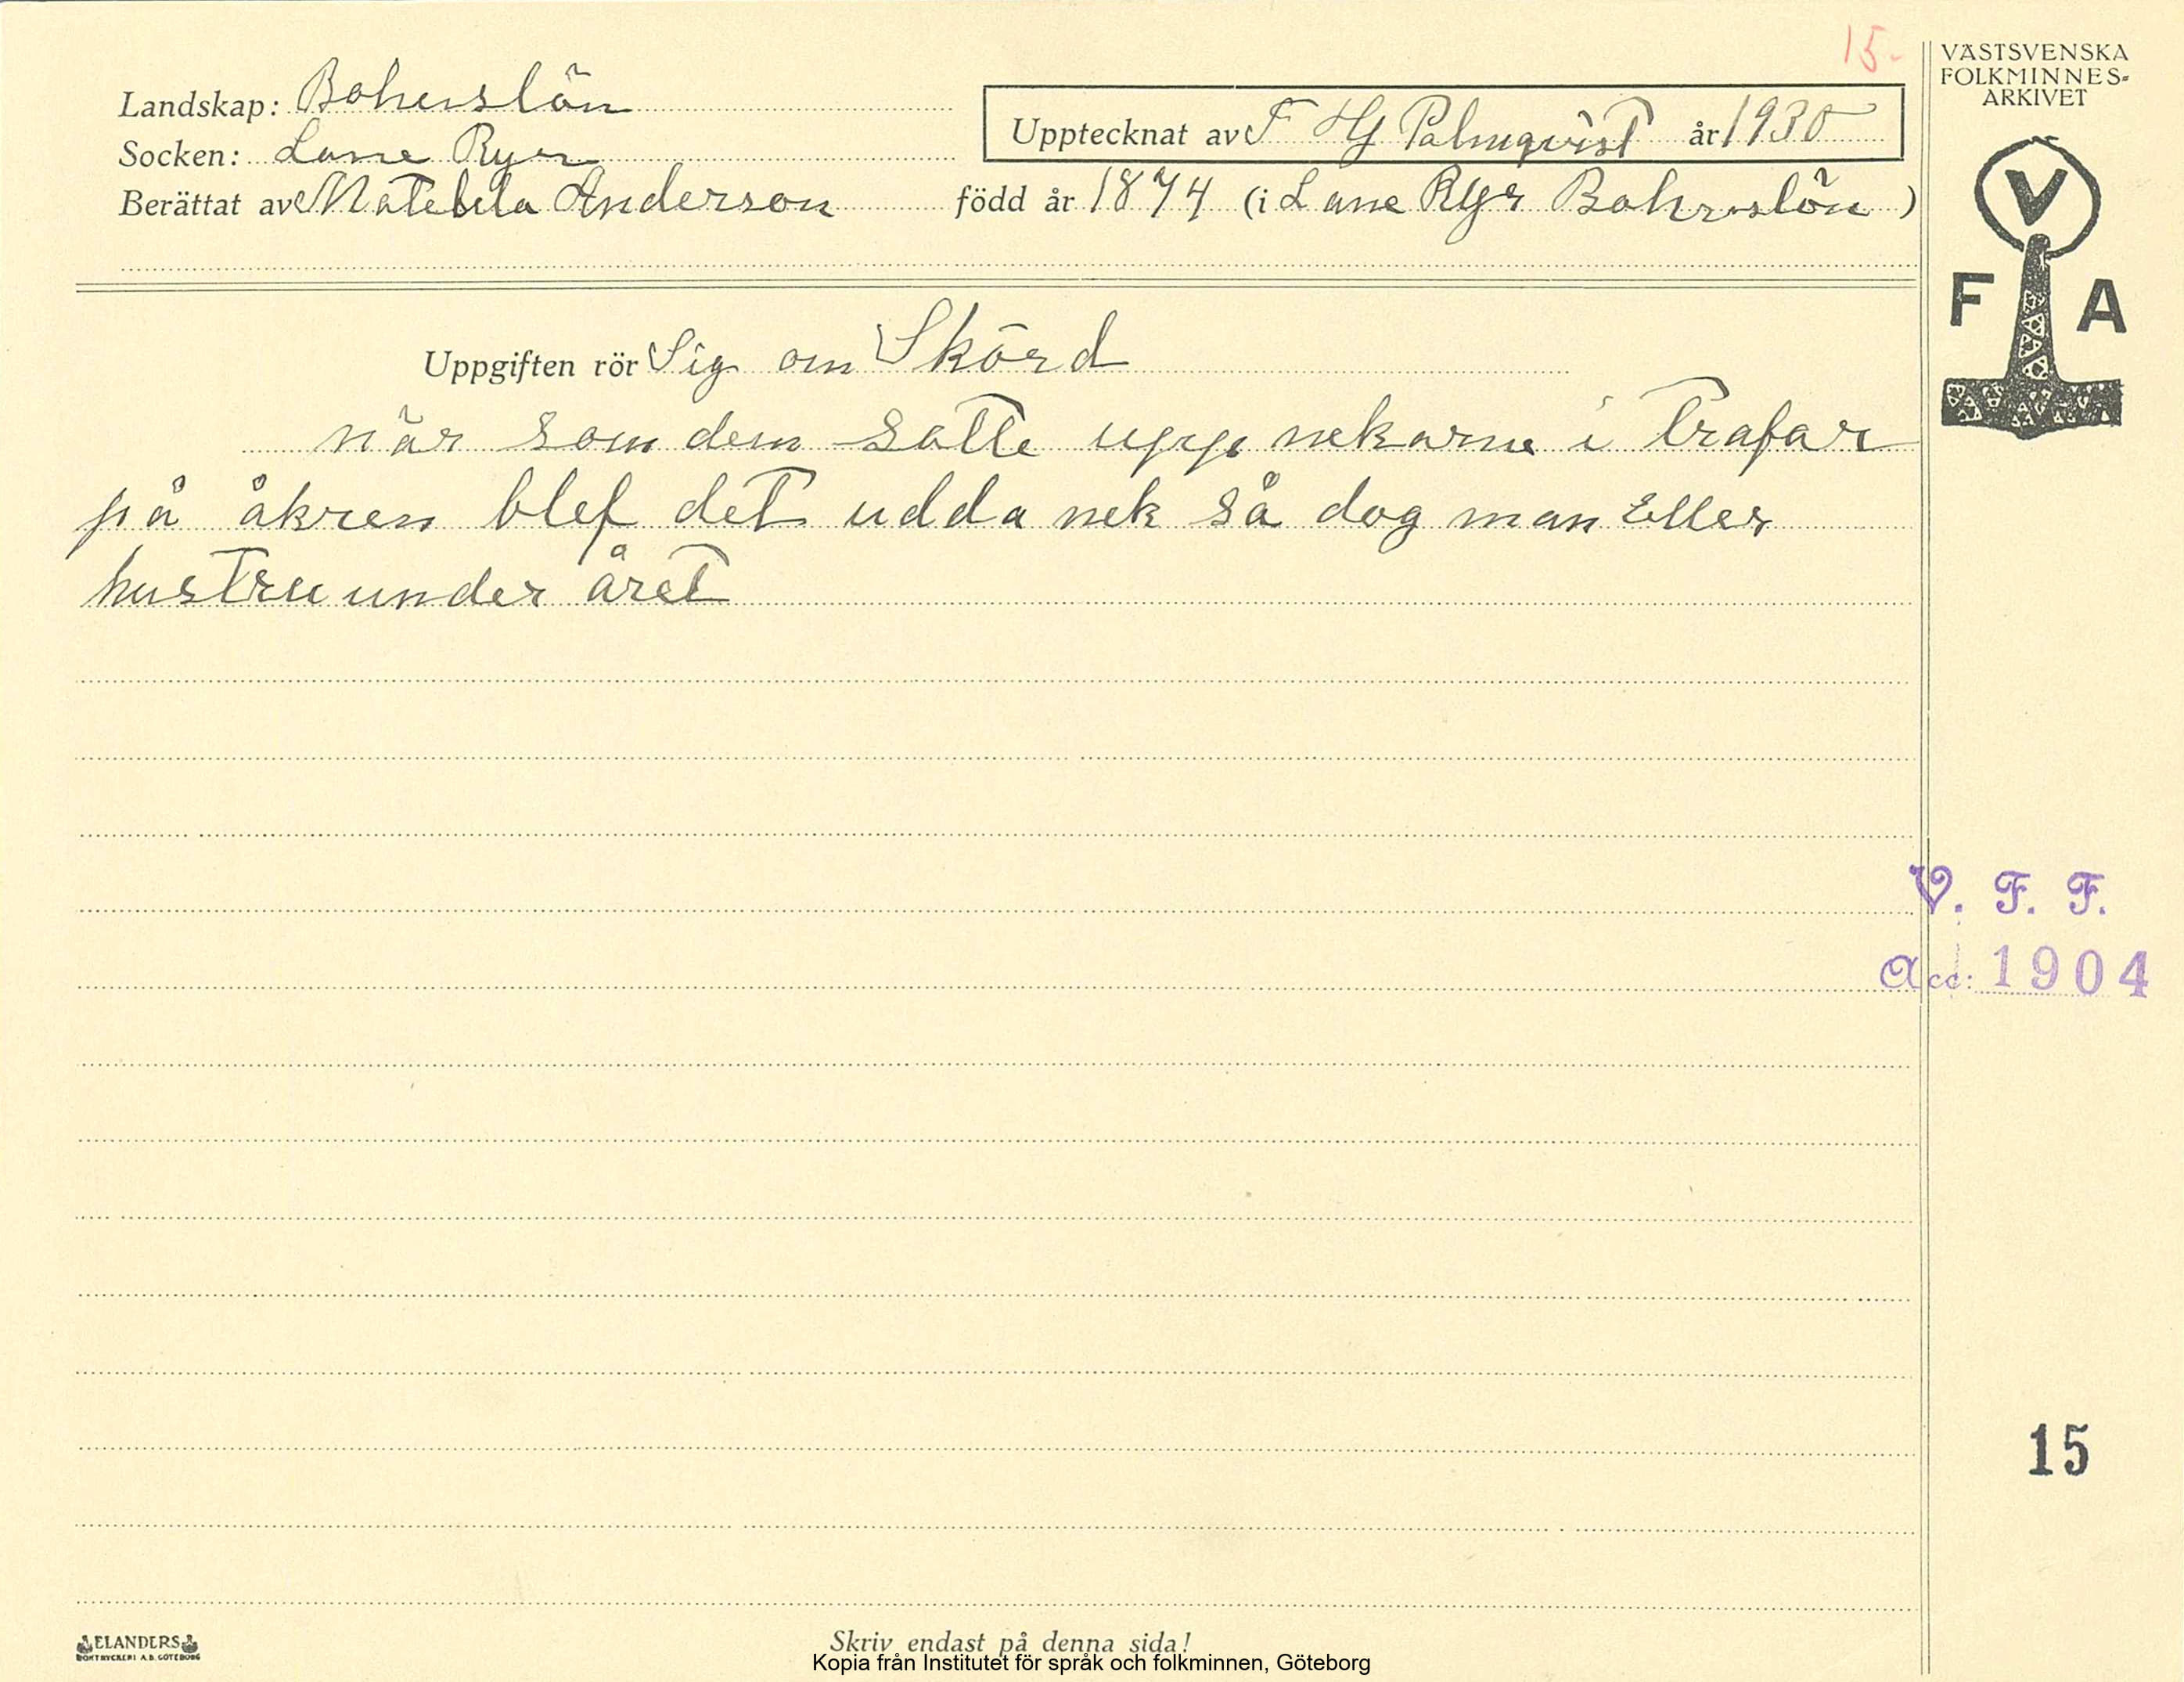 15-
VÄSTSVENSKA
FOLKMINNES-
ARKIVET
Landskap: Bohuslän
Upptecknat av F Hj Palmqvist år 1930
Socken: Lane Ryr
Berättat av Matelda Anderson född år 1874 (i Lane Ryr Bohuslän)
V
F A
Uppgiften rör Sig om Skörd
när som dem satte upp nekarne i Trafar
på åkren blef det udda nek så dog man Eller
hustru under året
V. F. F.
Acc: 1904
15
ELANDERS
BOKTRYCKERI A.B. GÖTEBORG
Skriv endast på denna sida!
Kopia från Institutet för språk och folkminnen, Göteborg